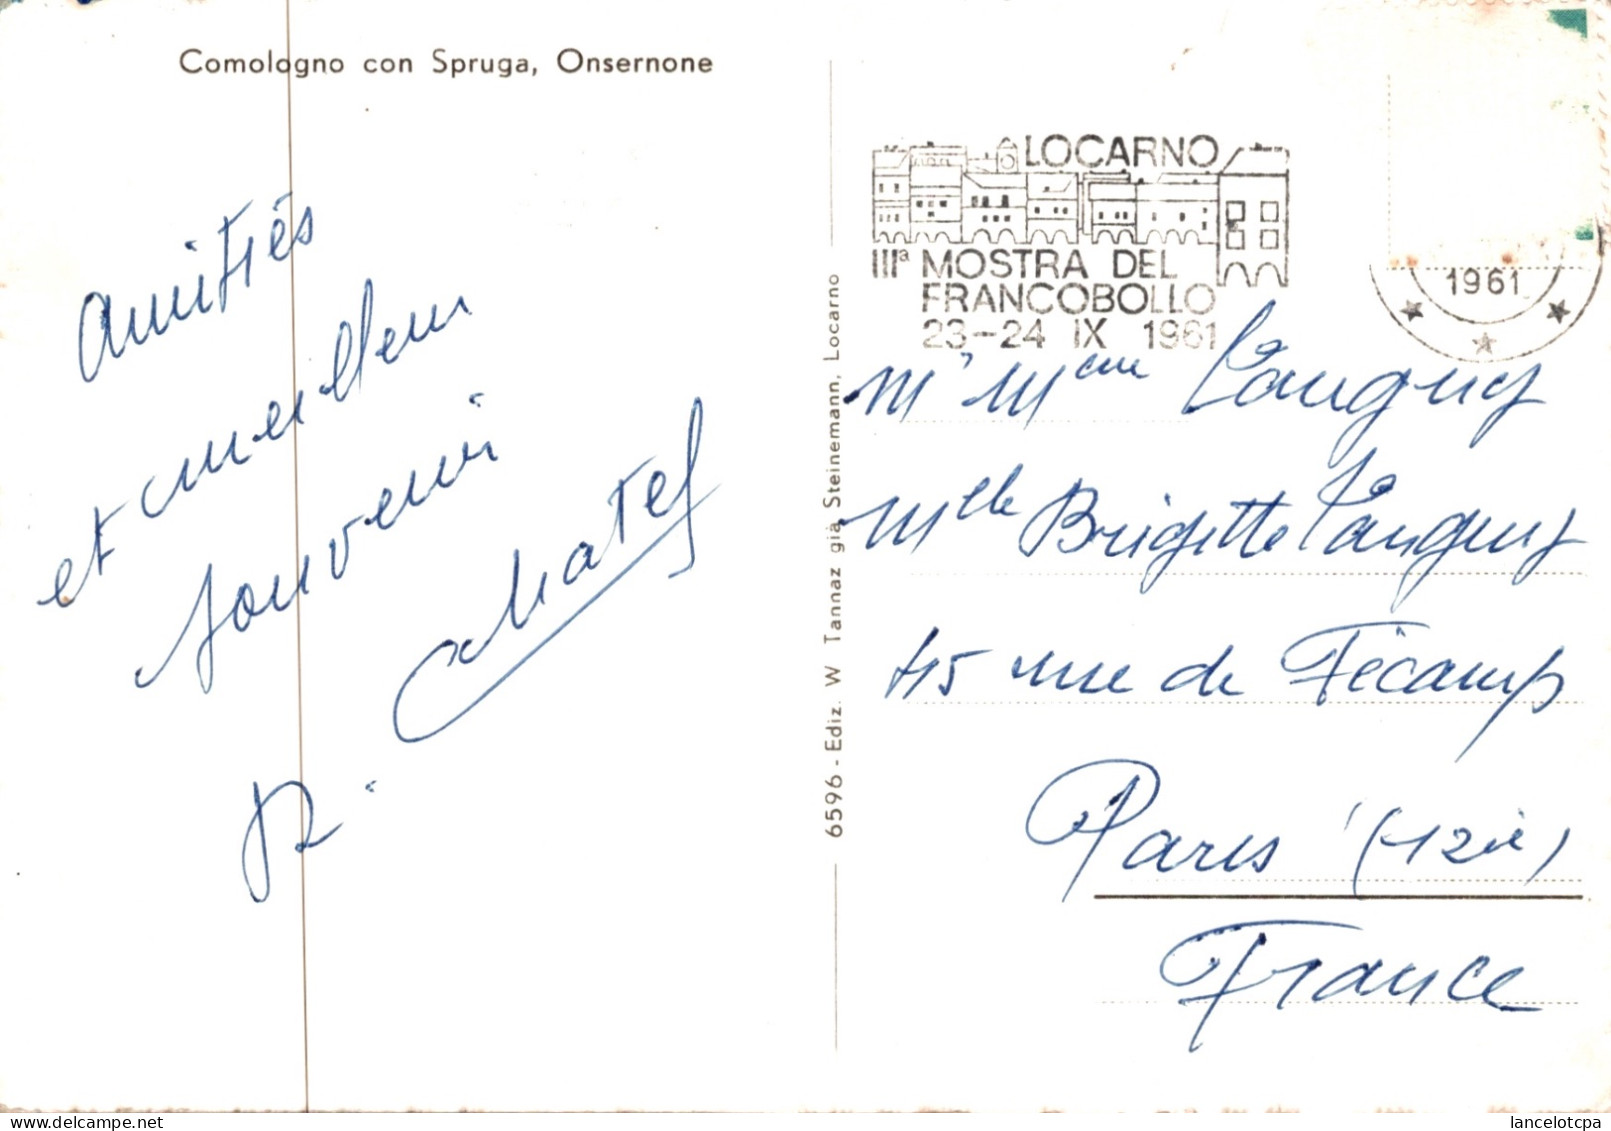 Comologno con Spruga, Onsernone
amitiés
et meilleur
souvenir
R. Chatel
6596 - Ediz. W Tannaz già Steinemann, Locarno
LOCARNO
IIIª MOSTRA DEL
FRANCOBOLLO
23-24 IX 1961
1961
Mr Mme Languy
Mlle Brigitte Languy
45 rue de Fécamp
Paris (12è)
France
lancelotcpa